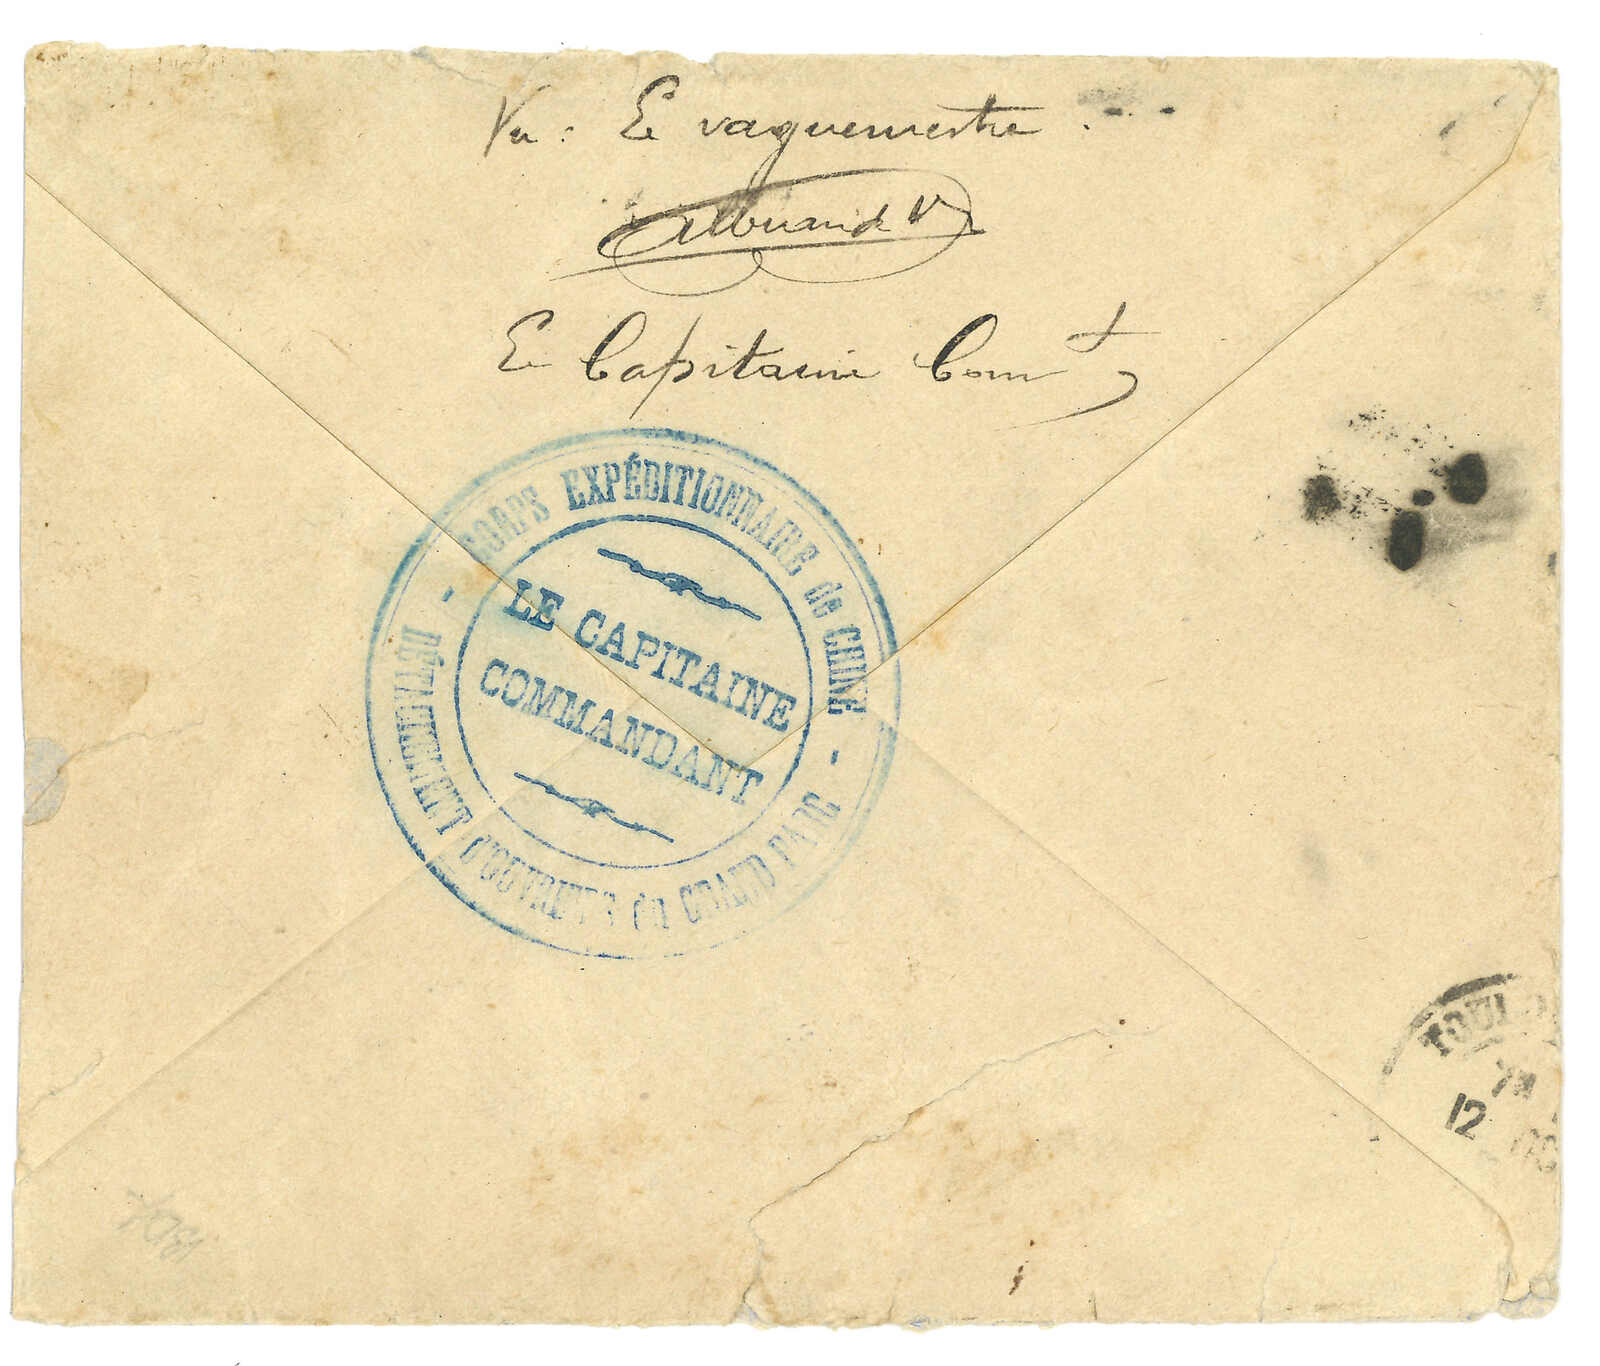 Vu : Le vaguemestre
Le Capitaine Comt
CORPS EXPÉDITIONNAIRE de CHINE
LE CAPITAINE
COMMANDANT
DÉTACHEMENT d'OUVRIERS du GRAND PARC
TOUL
12